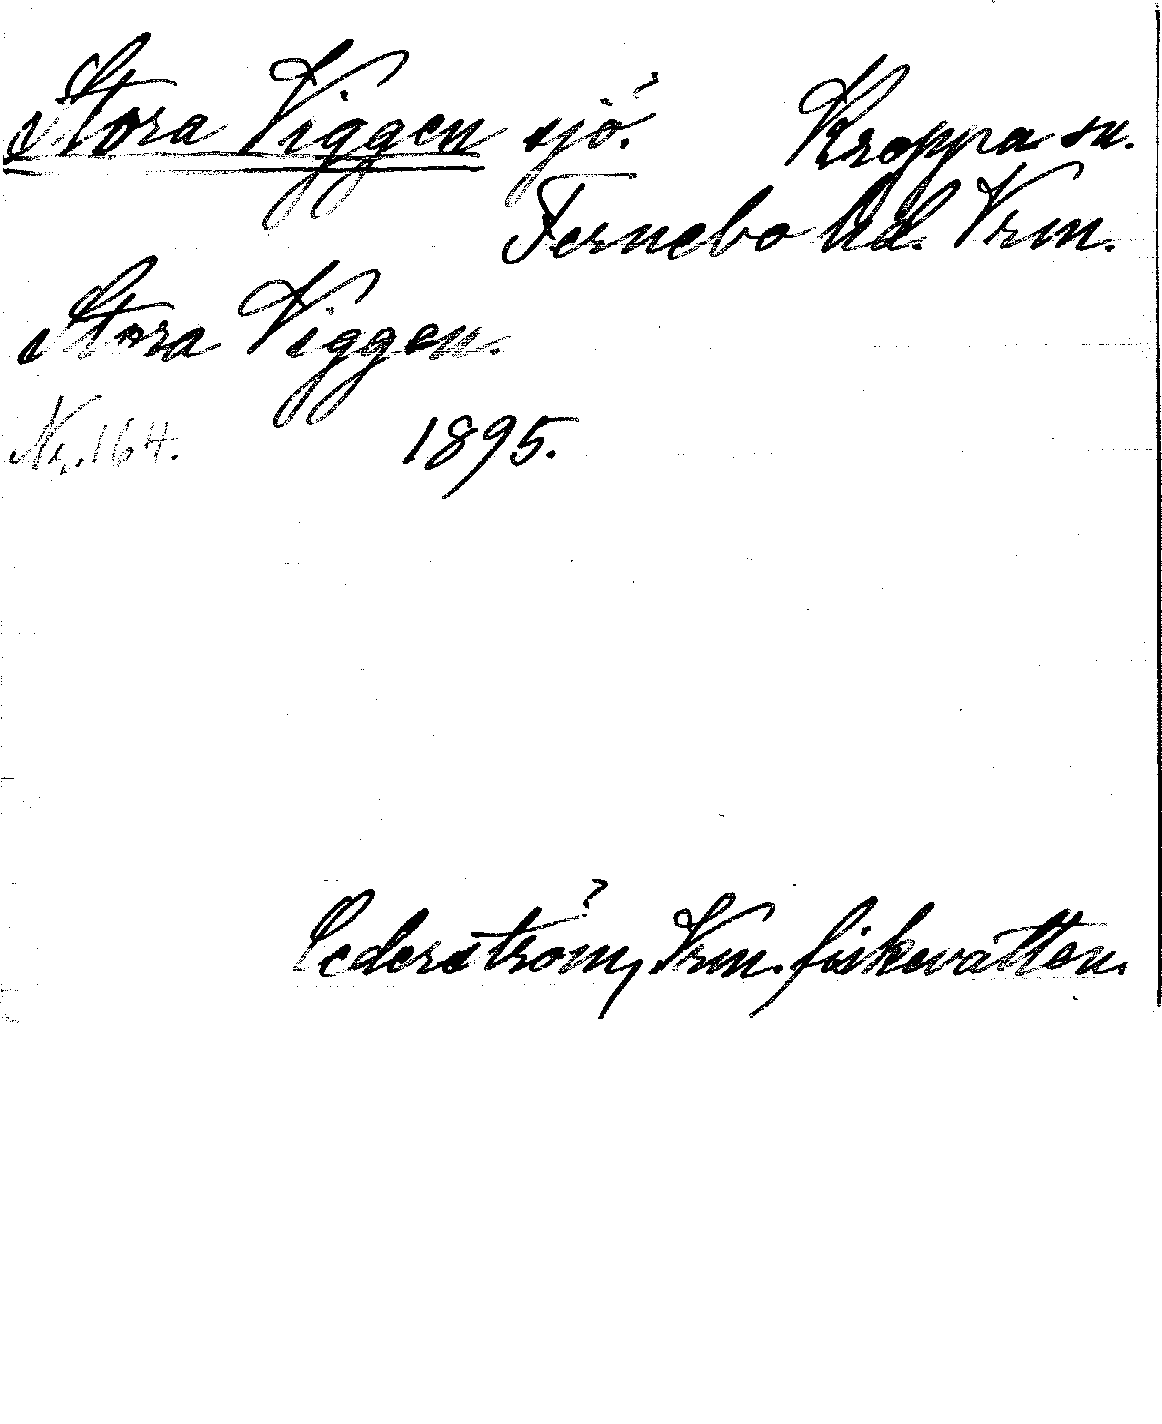 Stora Viggen sjö. Kroppa sn.
Fernebo hd. Vrm.
Stora Viggen.
Nr. 164. 1895.
Cederström, Vrm. fiskevatten.